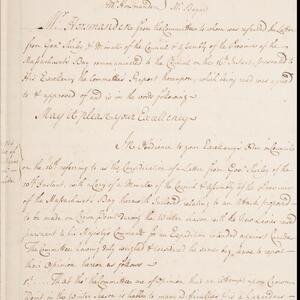 Mr. Horsmanden Mr. Bayar
Mr. Horsmanden from the Committee to whom was referred the Letter
from Gov. Shirley & Minute of the Council & Assembly of the Province of the
Massachusetts Bay communicated to the Council on the 16th Instant, presented to
His Excellency the Committee's Report thereupon, which being read was agreed
to & approved of and is in the words following
May it please your Excellency
In Obedience to your Excellency's Order in Council
on the 16th referring to us the Consideration of a Letter from Gov. Shirley of the
10th Instant, with a Copy of a Minute of the Council & Assembly of the Province
of the Massachusetts Bay therewith Inclosed relating to an Attack proposed
to be made on Crown Point during the Winter Season with the New Levies raised
pursuant to his Majesty's Commands for an Expedition intended against Canada.
The Committee having duly weighed & considered the same, beg leave to report
their Opinion hereon as follows
1st. That the Committee are of Opinion that an Attempt upon Crown
Point in the Winter Season is liable to many difficulties &